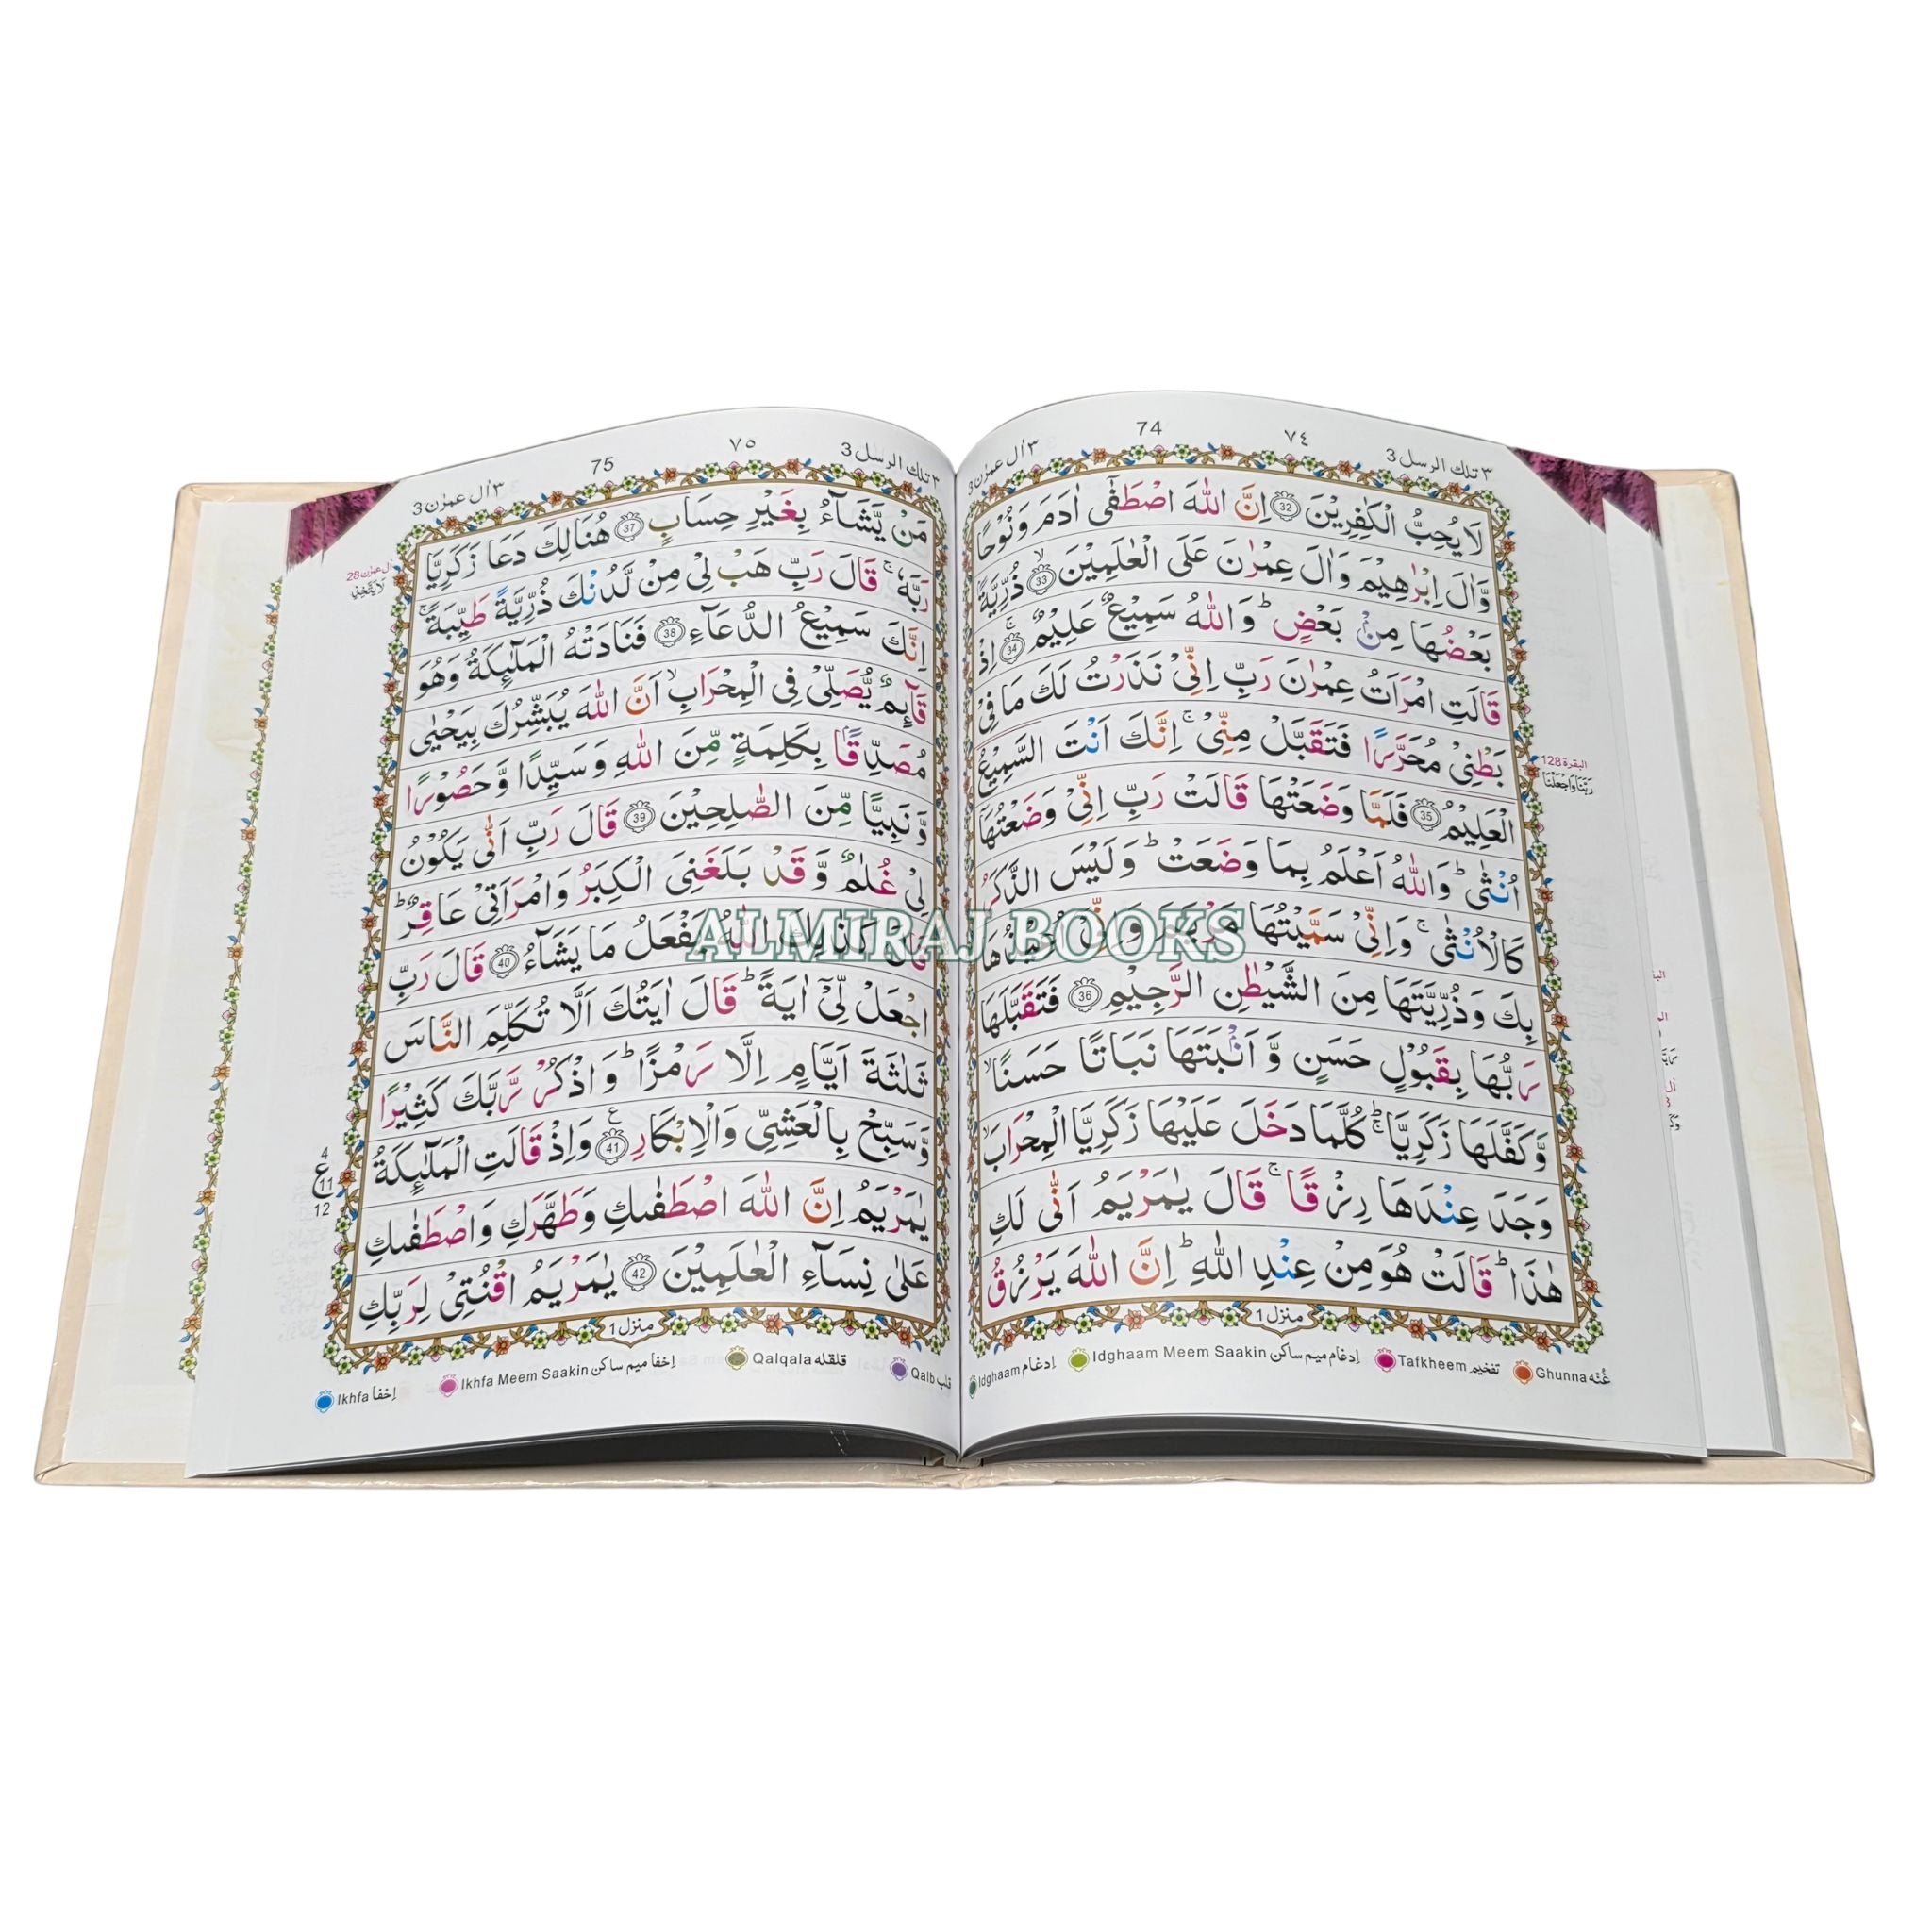 ٣ تلك الرسل 3
٧٤
74
٣ اٰل عمرٰن 3
لَا يُحِبُّ الْكٰفِرِيْنَ 32 اِنَّ اللّٰهَ اصْطَفٰٓى اٰدَمَ وَ نُوْحًا
وَّاٰلَ اِبْرٰهِيْمَ وَاٰلَ عِمْرٰنَ عَلَى الْعٰلَمِيْنَۙ 33 ذُرِّيَّةًۢ
بَعْضُهَا مِنْۢ بَعْضٍؕ وَاللّٰهُ سَمِيْعٌ عَلِيْمٌۚ 34 اِذْ
قَالَتِ امْرَاَتُ عِمْرٰنَ رَبِّ اِنِّيْ نَذَرْتُ لَكَ مَا فِيْ
بَطْنِيْ مُحَرَّرًا فَتَقَبَّلْ مِنِّيْۚ اِنَّكَ اَنْتَ السَّمِيْعُ
الْعَلِيْمُ 35 فَلَمَّا وَضَعَتْهَا قَالَتْ رَبِّ اِنِّيْ وَضَعْتُهَا
اُنْثٰىؕ وَاللّٰهُ اَعْلَمُ بِمَا وَضَعَتْؕ وَلَيْسَ الذَّكَرُ
كَالْاُنْثٰىۚ وَاِنِّيْ سَمَّيْتُهَا مَرْيَمَ وَاِنِّيْٓ
بِكَ وَذُرِّيَّتَهَا مِنَ الشَّيْطٰنِ الرَّجِيْمِ 36 فَتَقَبَّلَهَا
رَبُّهَا بِقَبُوْلٍ حَسَنٍ وَّ اَنْۢبَتَهَا نَبَاتًا حَسَنًاۙ
وَّكَفَّلَهَا زَكَرِيَّاؕۚ كُلَّمَا دَخَلَ عَلَيْهَا زَكَرِيَّا الْمِحْرَابَۙ
وَجَدَ عِنْدَهَا رِزْقًاۚ قَالَ يٰمَرْيَمُ اَنّٰى لَكِ
هٰذَاؕ قَالَتْ هُوَ مِنْ عِنْدِ اللّٰهِؕ اِنَّ اللّٰهَ يَرْزُقُ
منزل 1
البقرة 128
رَبَّنَا وَاجْعَلْنَا
Ghunna غُنّه
Tafkheem تفخیم
Idghaam Meem Saakin ادغام میم ساکن
Idghaam ادغام
٣ تلك الرسل 3
٧٥
75
٣ اٰل عمرٰن 3
مَنْ يَّشَآءُ بِغَيْرِ حِسَابٍ 37 هُنَالِكَ دَعَا زَكَرِيَّا
رَبَّهٗۚ قَالَ رَبِّ هَبْ لِيْ مِنْ لَّدُنْكَ ذُرِّيَّةً طَيِّبَةًۚ
اِنَّكَ سَمِيْعُ الدُّعَآءِ 38 فَنَادَتْهُ الْمَلٰٓئِكَةُ وَهُوَ
قَآئِمٌ يُّصَلِّيْ فِي الْمِحْرَابِۙ اَنَّ اللّٰهَ يُبَشِّرُكَ بِيَحْيٰى
مُصَدِّقًۢا بِكَلِمَةٍ مِّنَ اللّٰهِ وَ سَيِّدًا وَّ حَصُوْرًا
وَّ نَبِيًّا مِّنَ الصّٰلِحِيْنَ 39 قَالَ رَبِّ اَنّٰى يَكُوْنُ
لِيْ غُلٰمٌ وَّ قَدْ بَلَغَنِيَ الْكِبَرُ وَامْرَاَتِيْ عَاقِرٌؕ
كَذٰلِكَ اللّٰهُ يَفْعَلُ مَا يَشَآءُ 40 قَالَ رَبِّ
اجْعَلْ لِّيْٓ اٰيَةًؕ قَالَ اٰيَتُكَ اَلَّا تُكَلِّمَ النَّاسَ
ثَلٰثَةَ اَيَّامٍ اِلَّا رَمْزًاؕ وَاذْكُرْ رَّبَّكَ كَثِيْرًا
وَّسَبِّحْ بِالْعَشِيِّ وَالْاِبْكَارِ 41 وَاِذْ قَالَتِ الْمَلٰٓئِكَةُ
يٰمَرْيَمُ اِنَّ اللّٰهَ اصْطَفٰىكِ وَطَهَّرَكِ وَاصْطَفٰىكِ
عَلٰى نِسَآءِ الْعٰلَمِيْنَ 42 يٰمَرْيَمُ اقْنُتِيْ لِرَبِّكِ
منزل 1
اٰل عمرٰن 28
لَا يَتَّخِذِ
4
ع
11
12
Qalb قلب
Qalqala قلقله
Ikhfa Meem Saakin اخفا میم ساکن
Ikhfa اخفا
ALMIRAJ BOOKS